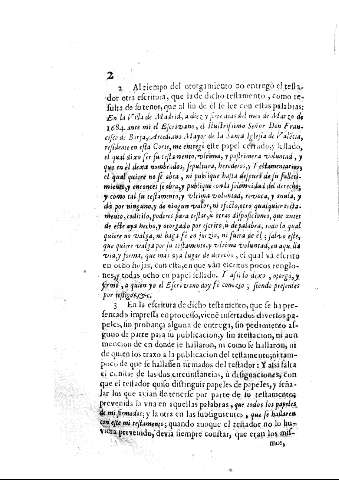 2
2 Al tiempo del otorgamiento no entregò el testa-
dor otra escritura, que la de dicho testamento, como re-
sulta de su tenor, que al fin de él se lee con estas palabras:
En la Villa de Madrid, a diez y siete dias del mes de Março de
1684. ante mi el Escrivano, el Ilustrissimo Señor Don Fran-
cisco de Borja, Arcediano Mayor de la Santa Iglesia de Valēcia,
residente en esta Corte, me entregò este papel cerrado, y sellado,
el qual dixo ser su testamento, vltima, y postrimera voluntad, y
que en el dexa nombrados, sepultura, herederos, y Testamentarios,
el qual quiere no se abra, ni publique hasta despues de su falleci-
miento, y entonces se abra, y publique con la solemnidad del derecho;
y como tal su testamento, y vltima voluntad, revoca, y anula, y
dà por ninguno, y de ningun valor, ni efecto, otro qualquier testa-
mento, cudicilo, poderes para testar, y otras disposiciones, que antes
de este aya hecho, y otorgado por escrito, ù de palabra, todo lo qual
quiere no valga, ni haga fè en juizio, ni fuera de èl; salvo este,
que quiere valga por su testamento, y vltima voluntad, en aquella
via, y forma, que mas aya lugar de derecho, el qual và escrito
en ocho hojas, con esta, en que vàn escritos pocos renglo-
nes, y todas ocho en papel sellado. Y assi lo dixo, otorgò, y
firmò, a quien yo el Escrivano doy fè conozco; siendo presentes
por testigos, &c.
3 En la escritura de dicho testamento, que se ha pre-
sentado impressa en processo, viene insertados diversos pa-
peles, sin probança alguna de entrega, sin pedimento al-
guno de parte para su publicacion, y sin atestacion, ni aun
mencion de en donde se hallaron, ni como se hallaron, ni
de quien los traxo a la publicacion del testamento; ni tam-
poco de que se hallassen firmados del testador: Y assi falta
el constar de las dos circunstancias, ò designaciones, con
que el testador quiso distinguir papeles de papeles, y seña-
lar los que avian de tenerse por parte de su testamento;
prevenida la vna en aquellas palabras, que todos los papeles
de mi firmados; y la otra en las subsiguientes, que se hallaren
con este mi testamento; quando aunque el testador no lo hu-
viera prevenido, devia siempre constar, que eran los mis-
mos,